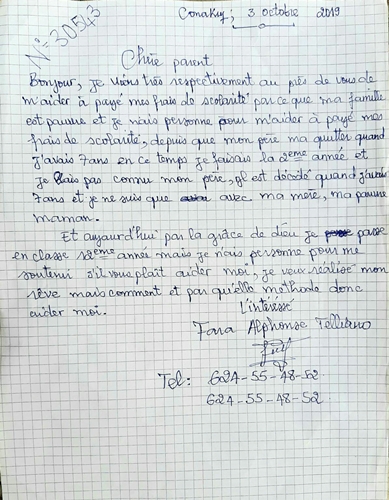 N° 30543
Conakry; 3 octobre 2019
Chère parent
Bonjour, je viens très respectivement au près de vous de
m'aider à payé mes frais de scolarité par ce que ma famille
est pauvre et je n'ais personne pour m'aider à payé mes
frais de scolarité, depuis que mon père ma quitter quand
j'avais 7ans en ce temps je faisais la 2ème année et
je pas connu mon père, il est décédé quand j'avais
7ans et je ne suis que avec ma mère, ma pauvre
maman.
Et aujourd'hui par la grâce de dieu je passe
en classe 12ème année mais je n'ais personne pour me
soutenu s'il vous plaît aider moi, je veux réalisé mon
rêve mais comment et par qu'elle méthode donc
aider moi.
L'intéressé
Fara Alphonse Telliano
Tel: 624-55-48-52
624-55-48-52